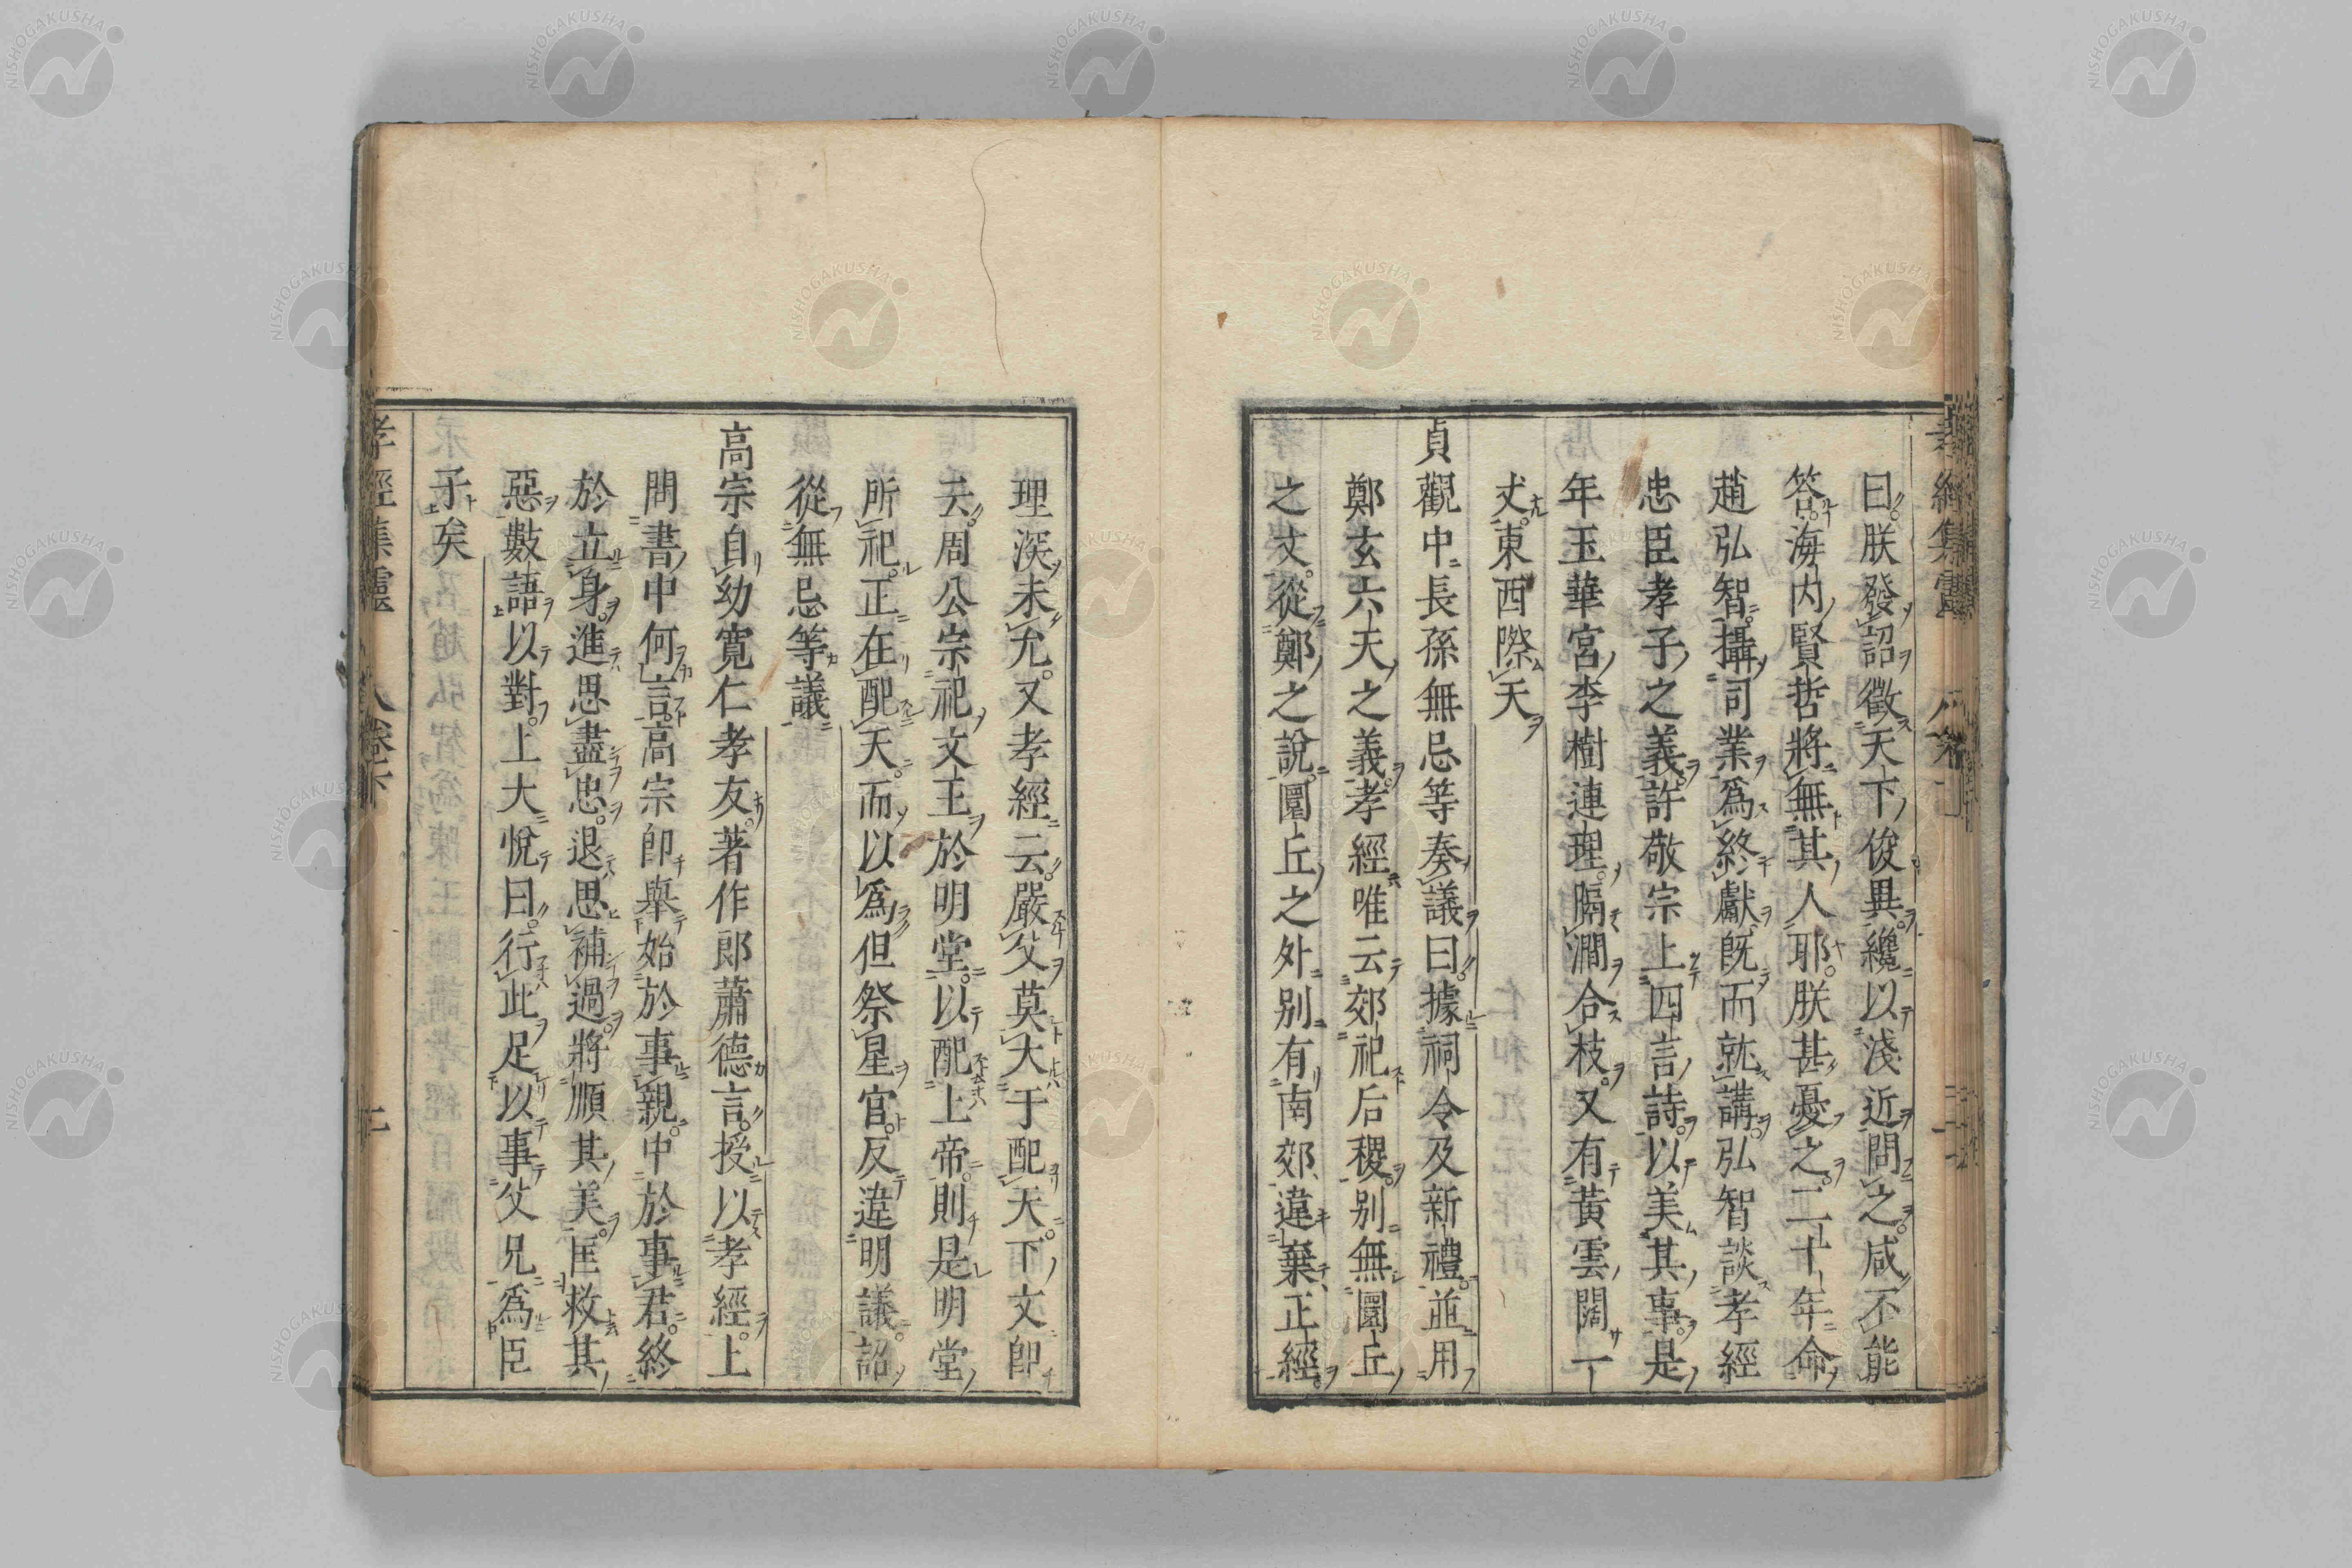 曰朕發詔徵天下俊異纔以淺近問之咸不能
答海内賢哲將無其人耶朕甚憂之二十年命
趙弘智攝司業爲終獻旣而就講弘智談孝經
忠臣孝子之義許敬宗上四言詩以美其事是
年玉華宮李樹連理隔澗合枝又有黃雲闊一
丈東西際天
貞觀中長孫無忌等奏議曰據祠令及新禮並用
鄭玄六天之義孝經唯云郊祀后稷别無圜丘
之文從鄭之說圜丘之外别有南郊違棄正經
理深未允又孝經云嚴父莫大于配天下文卽
云周公宗祀文王於明堂以配上帝則是明堂
所祀正在配天而以爲但祭星官反違明議詔
從無忌等議
高宗自幼寛仁孝友著作郎蕭德言授以孝經上
問書中何言高宗卽舉始於事親中於事君終
於立身進思盡忠退思補過將順其美匡救其
惡數語以對上大悅曰行此足以事父兄爲臣
子矣
孝經集靈 卷下
NISHOGAKUSHA